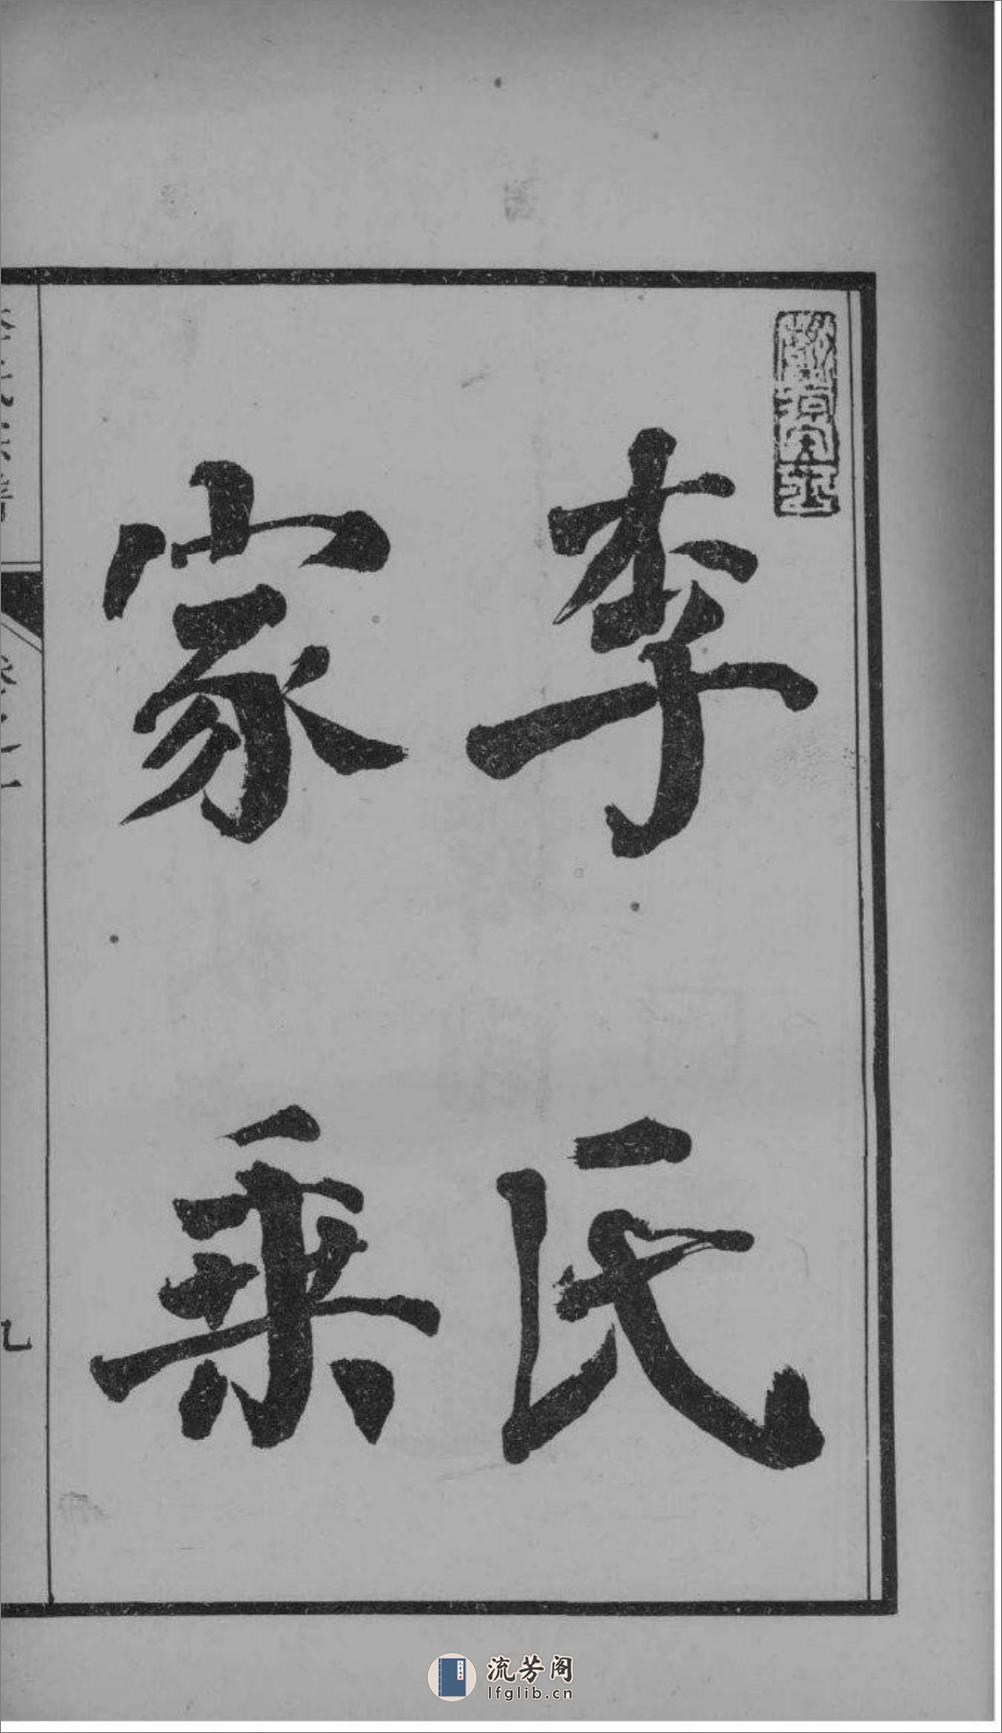 李氏
家乘
九
流芳阁
lfglib.cn